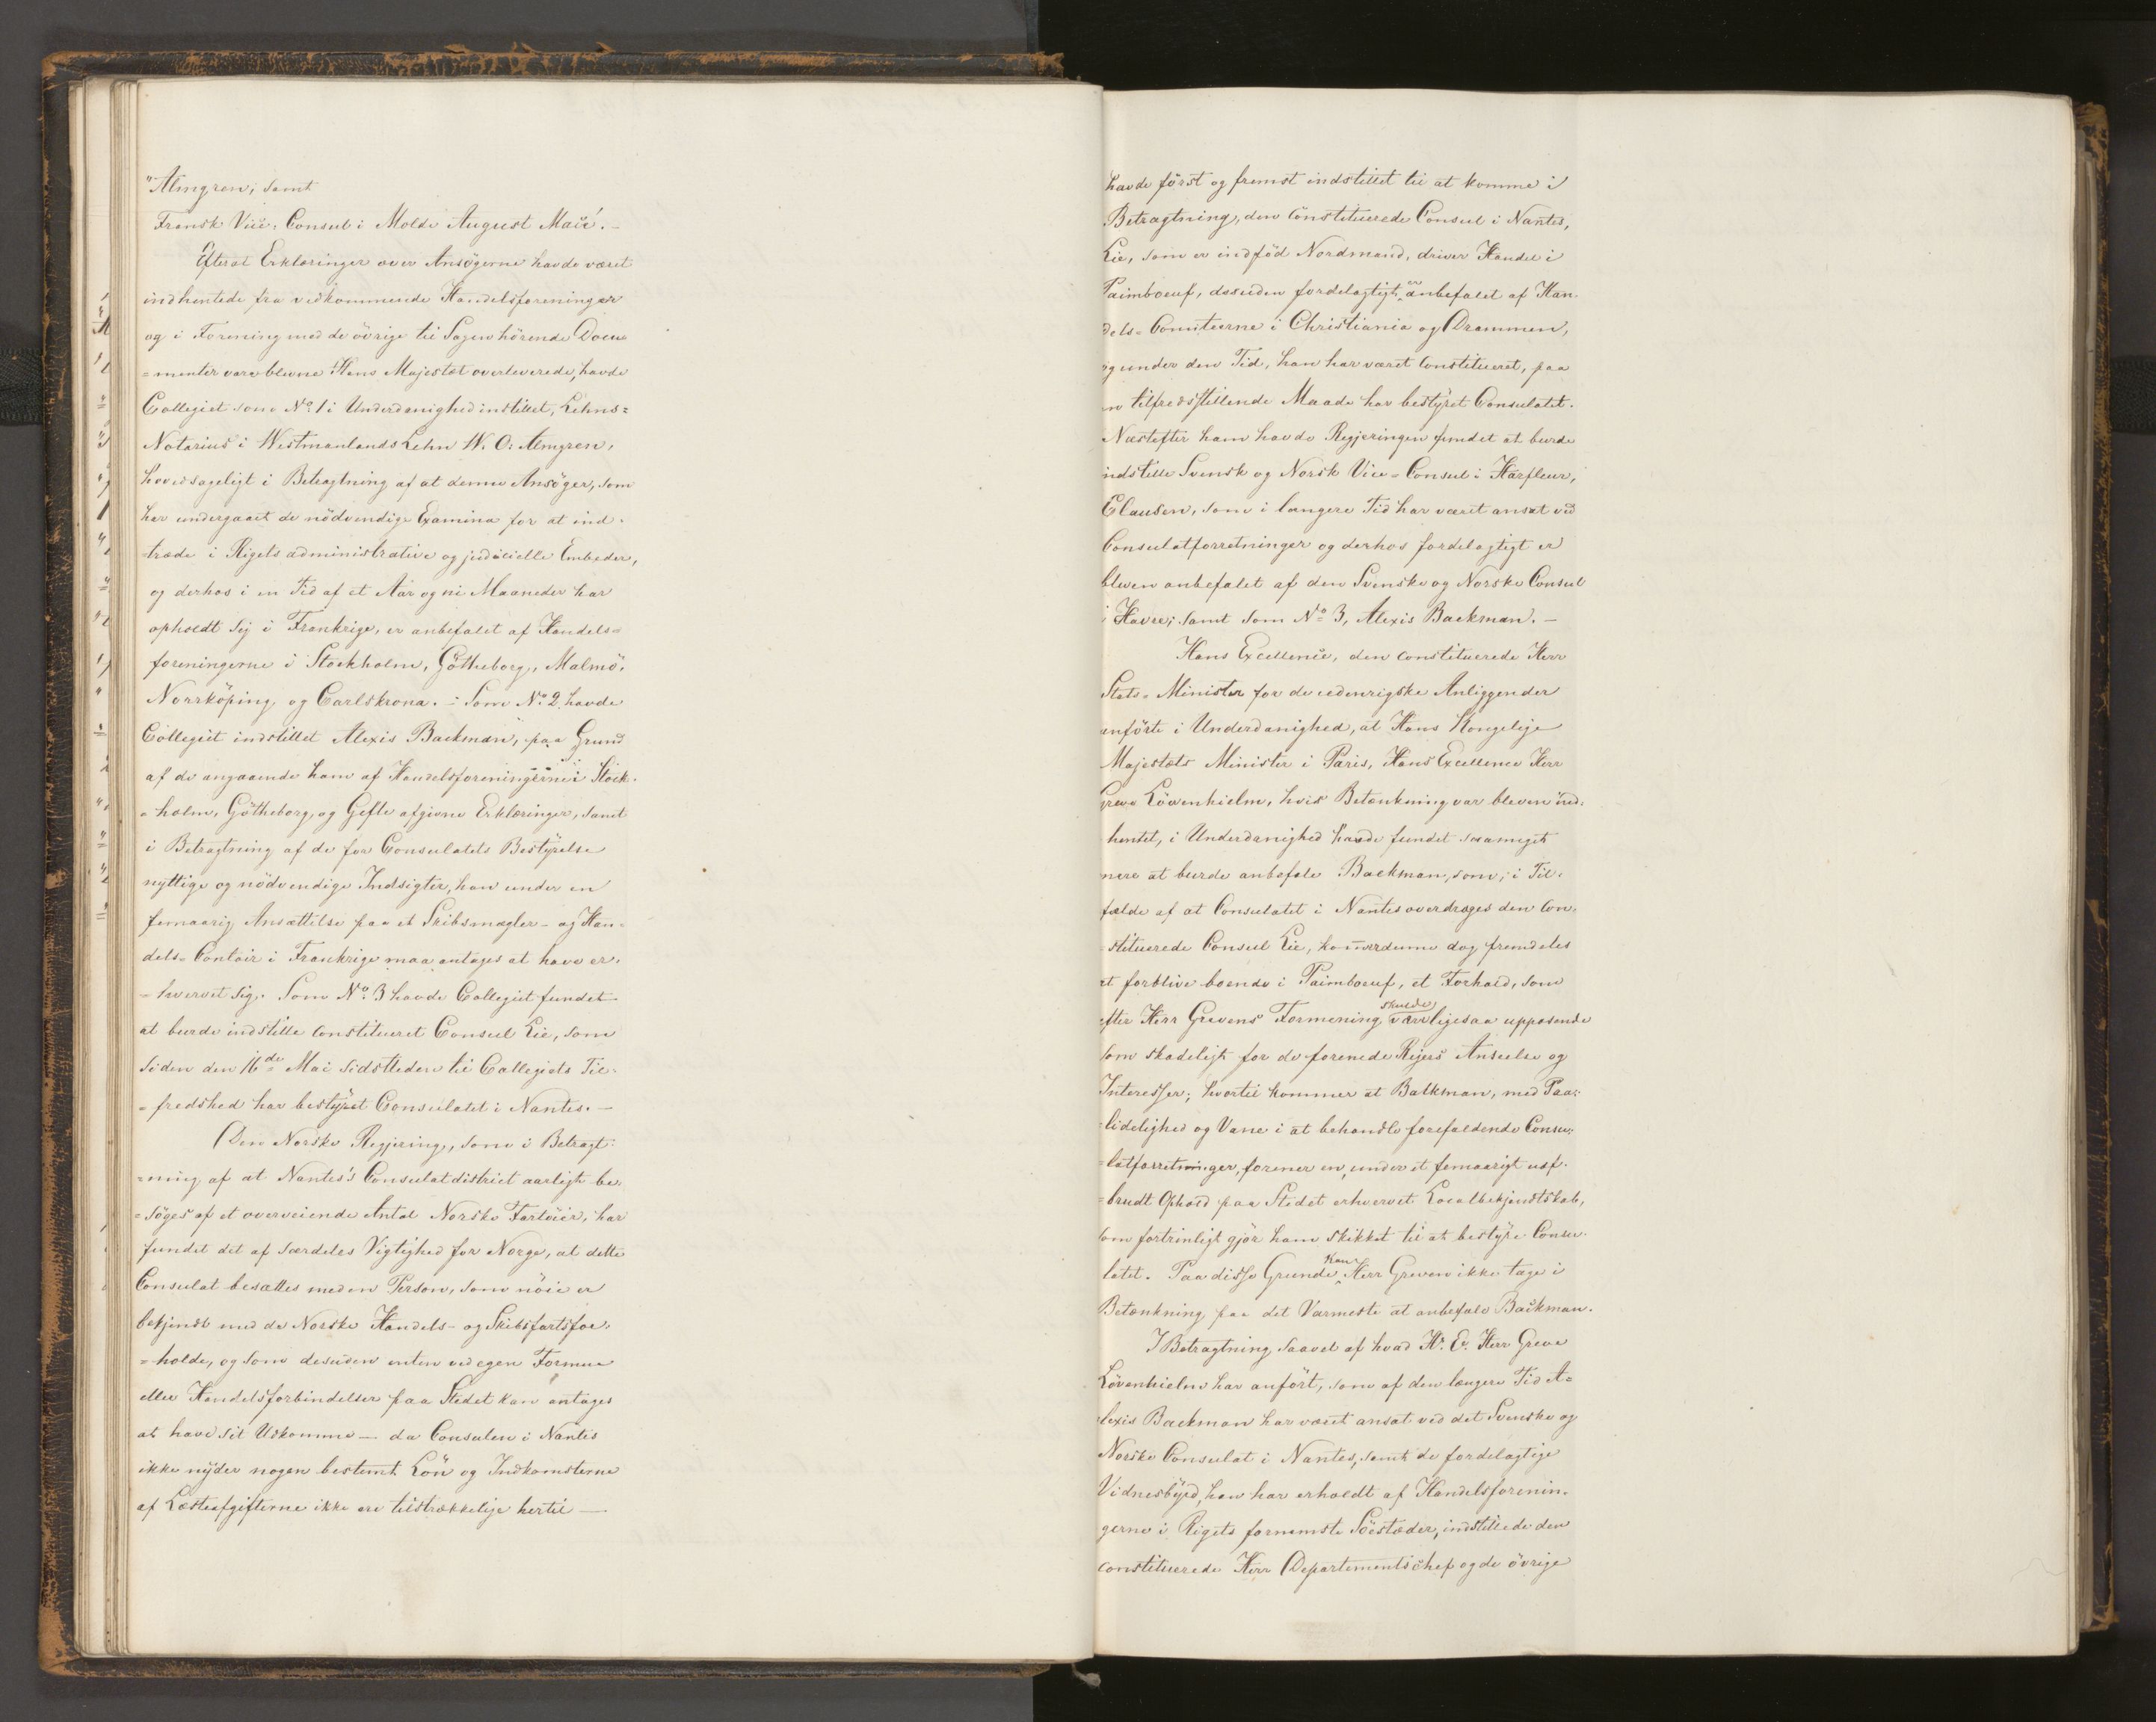 "Almgren; samt
Fransk Vice-Consul i Molde August Macé.-
Efterat Erklæringer over Ansögerne havde været
indhentede fra vedkommende Handelsforeninger
og i Forening med de övrige til Sagen hörende Docu-
=menter vare blevne Hans Majestæt overleverede, havde
Collegiet som No 1 i Underdanighed indstillet, Lehns=
Notarius i Westmanlands Lehn W. O. Almgren,
hovedsageligt i Betragtning af at denne Ansöger, som
har undergaaet de nödvendige Examina for at ind-
træde i Rigets administrative og judicielle Embeder,
og derhos i en Tid af et Aar og ni Maaneder har
opholdt sig i Frankrige, er anbefalet af Handels=
foreningerne i Stockholm, Götheborg, Malmö,
Norrköping og Carlskrona. - Som No 2 havde
Collegiet indstillet Alexis Backman, paa Grund
af de angaaende ham af Handelsforeningerne i Stock-
=holm, Götheborg og Gefle afgivne Erklæringer, samt
i Betragtning af de for Consulatets Bestyrelse
nyttige og nödvendige Indsigter, han under en
femaarig Ansættelse paa et Skibsmægler- og Han-
dels-Contoir i Frankrige maa antages at have er-
=hvervet sig. Som No 3 havde Collegiet fundet
at burde indstille constitueret Consul Lie, som
siden den 16de Mai sidstleden til Collegiets Til-
=fredshed har bestyret Consulatet i Nantes.-
Den Norske Regjering, som i Betragt-
=ning af at Nantes's Consulatdistrict aarligt be-
=söges af et overveiende Antal Norske Fartöier, har
fundet det af særdeles Vigtighed for Norge, at dette
Consulat besættes med en Person, som nöie er
bekjendt med de Norske Handels- og Skibsfartsfor-
=holde, og som desuden enten ved egen Formue
eller Handelsforbindelser paa Stedet kan antages
at have sit Udkomme - da Consulen i Nantes
ikke nyder nogen bestemt Lön og Indkomsterne
af Læsteafgifterne ikke ere tilstrækkelige hertil -
havde först og fremst indstillet til at komme i
Betragtning, den constituerede Consul i Nantes,
Lie, som er indföd Nordmand, driver Handel i
Paimboeuf, desuden fordelagtigt er anbefalet af Han-
dels-Comiteerne i Christiania og Drammen,
og under den Tid, han har været constitueret, paa
en tilfredsstillende Maade har bestyret Consulatet.
Næstefter ham havde Regjeringen fundet at burde
indstille Svensk og Norsk Vice-Consul i Harfleur,
Clausen, som i længere Tid har været ansat ved
Consulatforretninger og derhos fordelagtigt er
bleven anbefalet af den Svenske og Norske Consul
i Havre; samt som No 3, Alexis Backman.-
Hans Excellence, den constituerede Herr
Stats-Minister for de udenrigske Anliggender
anförte i Underdanighed, at Hans Kongelige
Majestæts Minister i Paris, Hans Excellence Herr
Greve Löwenhielm, hvis Betænkning var bleven ind-
hentet, i Underdanighed havde fundet saameget
mere at burde anbefale Backman, som, i Til-
fælde af at Consulatet i Nantes overdrages den con-
=stituerede Consul Lie, denne dog fremdeles
at forblive boende i Paimboeuf, et Forhold, som
efter Herr Grevens Formening skulde være ligesaa uppasende
som skadeligt for de forenede Rigers Anseelse og
Interesser; hvortil kommer at Backman, med Paa-
=lidelighed og Vane i at behandle forefaldende Consu-
=latforretninger, forener en, under et femaarigt uaf-
=brudt Ophold paa Stedet erhvervet Localbekjendtskab,
som fortrinligt gjör ham skikket til at bestyre Consu-
latet. Paa disse Grunde kan Herr Greven ikke tage i
Betænkning paa det Varmeste at anbefale Backman.
I Betragtning saavel af hvad H. E. Herr Greve
Lövenhielm har anfört, som af den længere Tid A=
lexis Backman har været ansat ved det Svenske og
Norske Consulat i Nantes, samt de fordelagtige
Vidnesbyrd, han har erholdt af Handelsforenin-
gerne i Rigets fornemste Söestæder, indstillede den
constituerede Herr Departementschef og de övrige